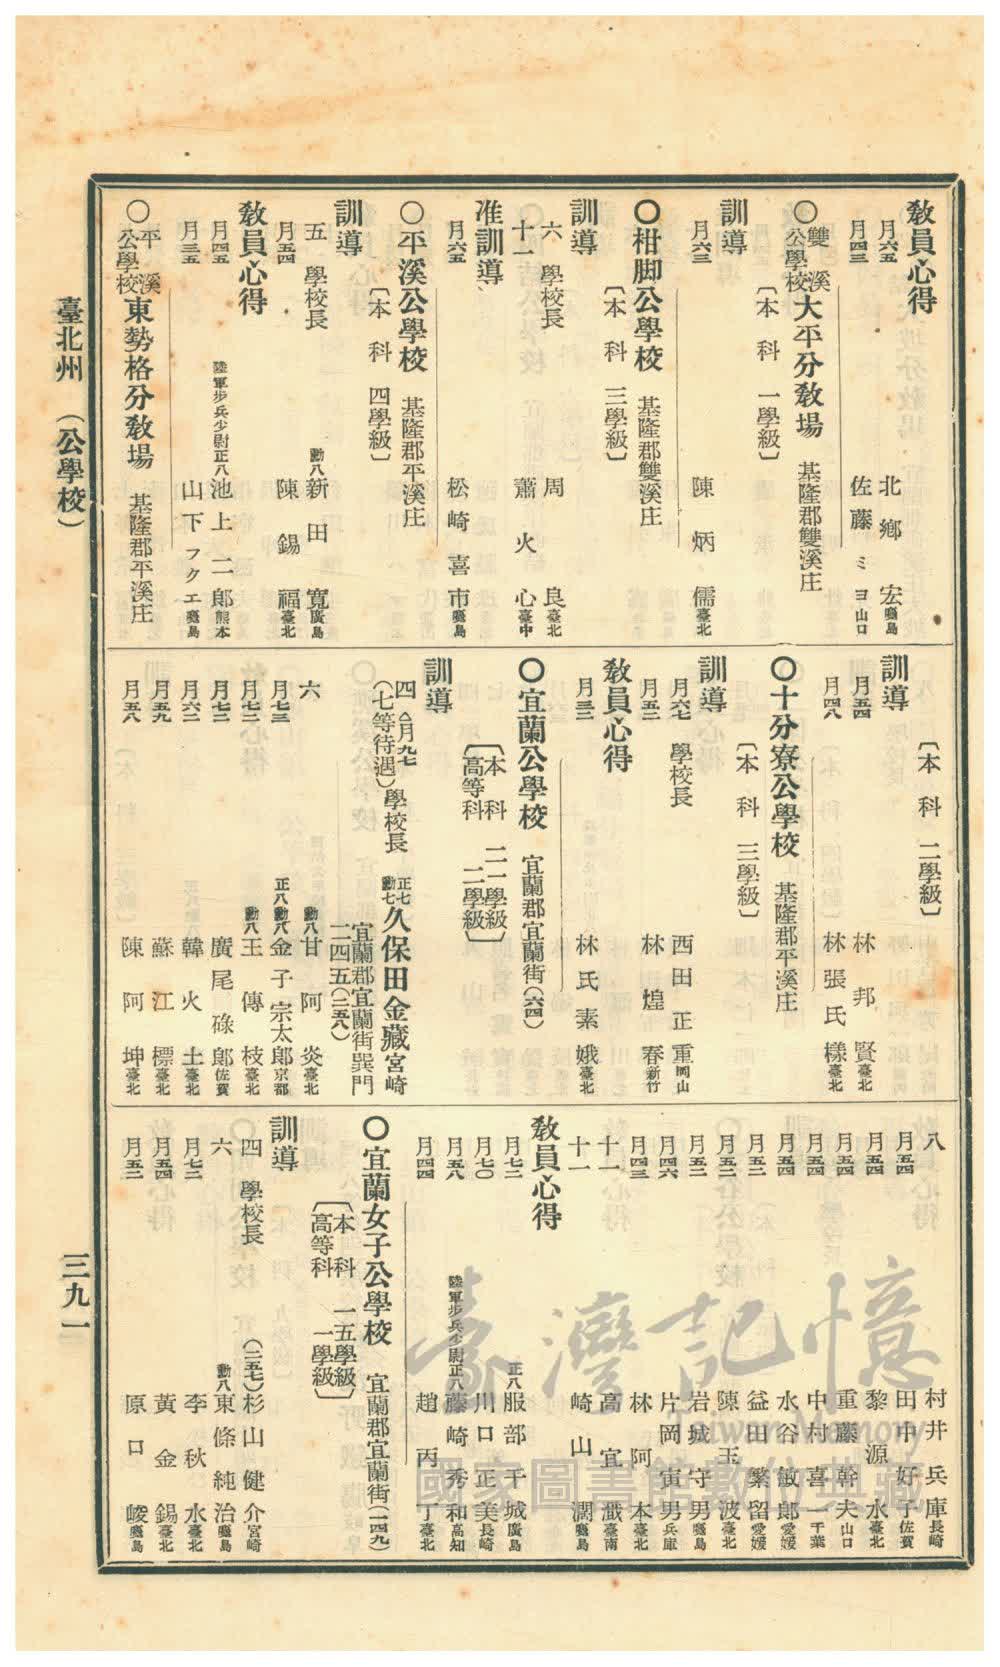 教員心得
月六五 北鄉宏 鹿兒島
月四三 佐藤ミヨ 山口
○雙溪公學校大平分教場 基隆郡雙溪庄
〔本科 一學級〕
訓導
月六三 陳炳儒 臺北
○柑脚公學校 基隆郡雙溪庄
〔本科 三學級〕
訓導
六 學校長 周良 臺北
十一 蕭火心 臺中
准訓導
月六五 松崎喜市 鹿兒島
○平溪公學校 基隆郡平溪庄
〔本科 四學級〕
訓導
五 學校長 勳八 新田寬 廣島
月五四 陳錫福 臺北
教員心得
月四五 陸軍步兵少尉正八 池上二郎 熊本
月三五 山下フクエ 鹿兒島
○平溪公學校東勢格分教場 基隆郡平溪庄
〔本科 二學級〕
訓導
月五四 林邦賢 臺北
月四八 林張氏樣 臺北
○十分寮公學校 基隆郡平溪庄
〔本科 三學級〕
訓導
月六七 學校長 西田正重 岡山
月五二 林煌春 新竹
教員心得
月三三 林氏素娥 臺北
○宜蘭公學校 宜蘭郡宜蘭街(六四)
〔本科 二一學級
高等科 二學級〕
訓導
四 八月九七
(七等待遇)學校長 正七勳七 久保田金藏 宮崎
宜蘭郡宜蘭街巽門
二四五(二五八)
六 勳八 甘阿炎 臺北
月七三 正八勳八 金子宗太郎 京都
月七二 勳八 王傳枝 臺北
月七二 廣尾碌郎 佐賀
月六二 韓火土 臺北
月五九 蘇江標 臺北
月五八 陳阿坤 臺北
八 村井兵庫 長崎
月五四 田中好子 佐賀
月五四 黎源水 臺北
月五四 重藤幹夫 山口
月五四 中村喜一 千葉
月五四 水谷敏郎 愛媛
月五二 益田繁留 愛媛
月五二 陳玉波 臺北
月五二 岩城守男 鹿兒島
月四六 片岡寅男 兵庫
月四三 林阿本 臺北
十一 高宜 臺南
十一 崎山濶 鹿兒島
教員心得
月七二 正八 服部干城 廣島
月七〇 川口正美 長崎
月五八 陸軍步兵少尉正八 藤崎秀和 高知
月四四 趙丙丁 臺北
○宜蘭女子公學校 宜蘭郡宜蘭街(一四九)
〔本科 一五學級
高等科 一學級〕
訓導
四 學校長 (二五七)杉山健介 宮崎
六 勳八 東條純治 鹿兒島
月七二 李秋水 臺北
月五四 黃金錫 臺北
月五二 原口峻 鹿兒島
臺北州 (公學校)
三九一
臺灣記憶
Taiwan Memory
國家圖書館數位典藏